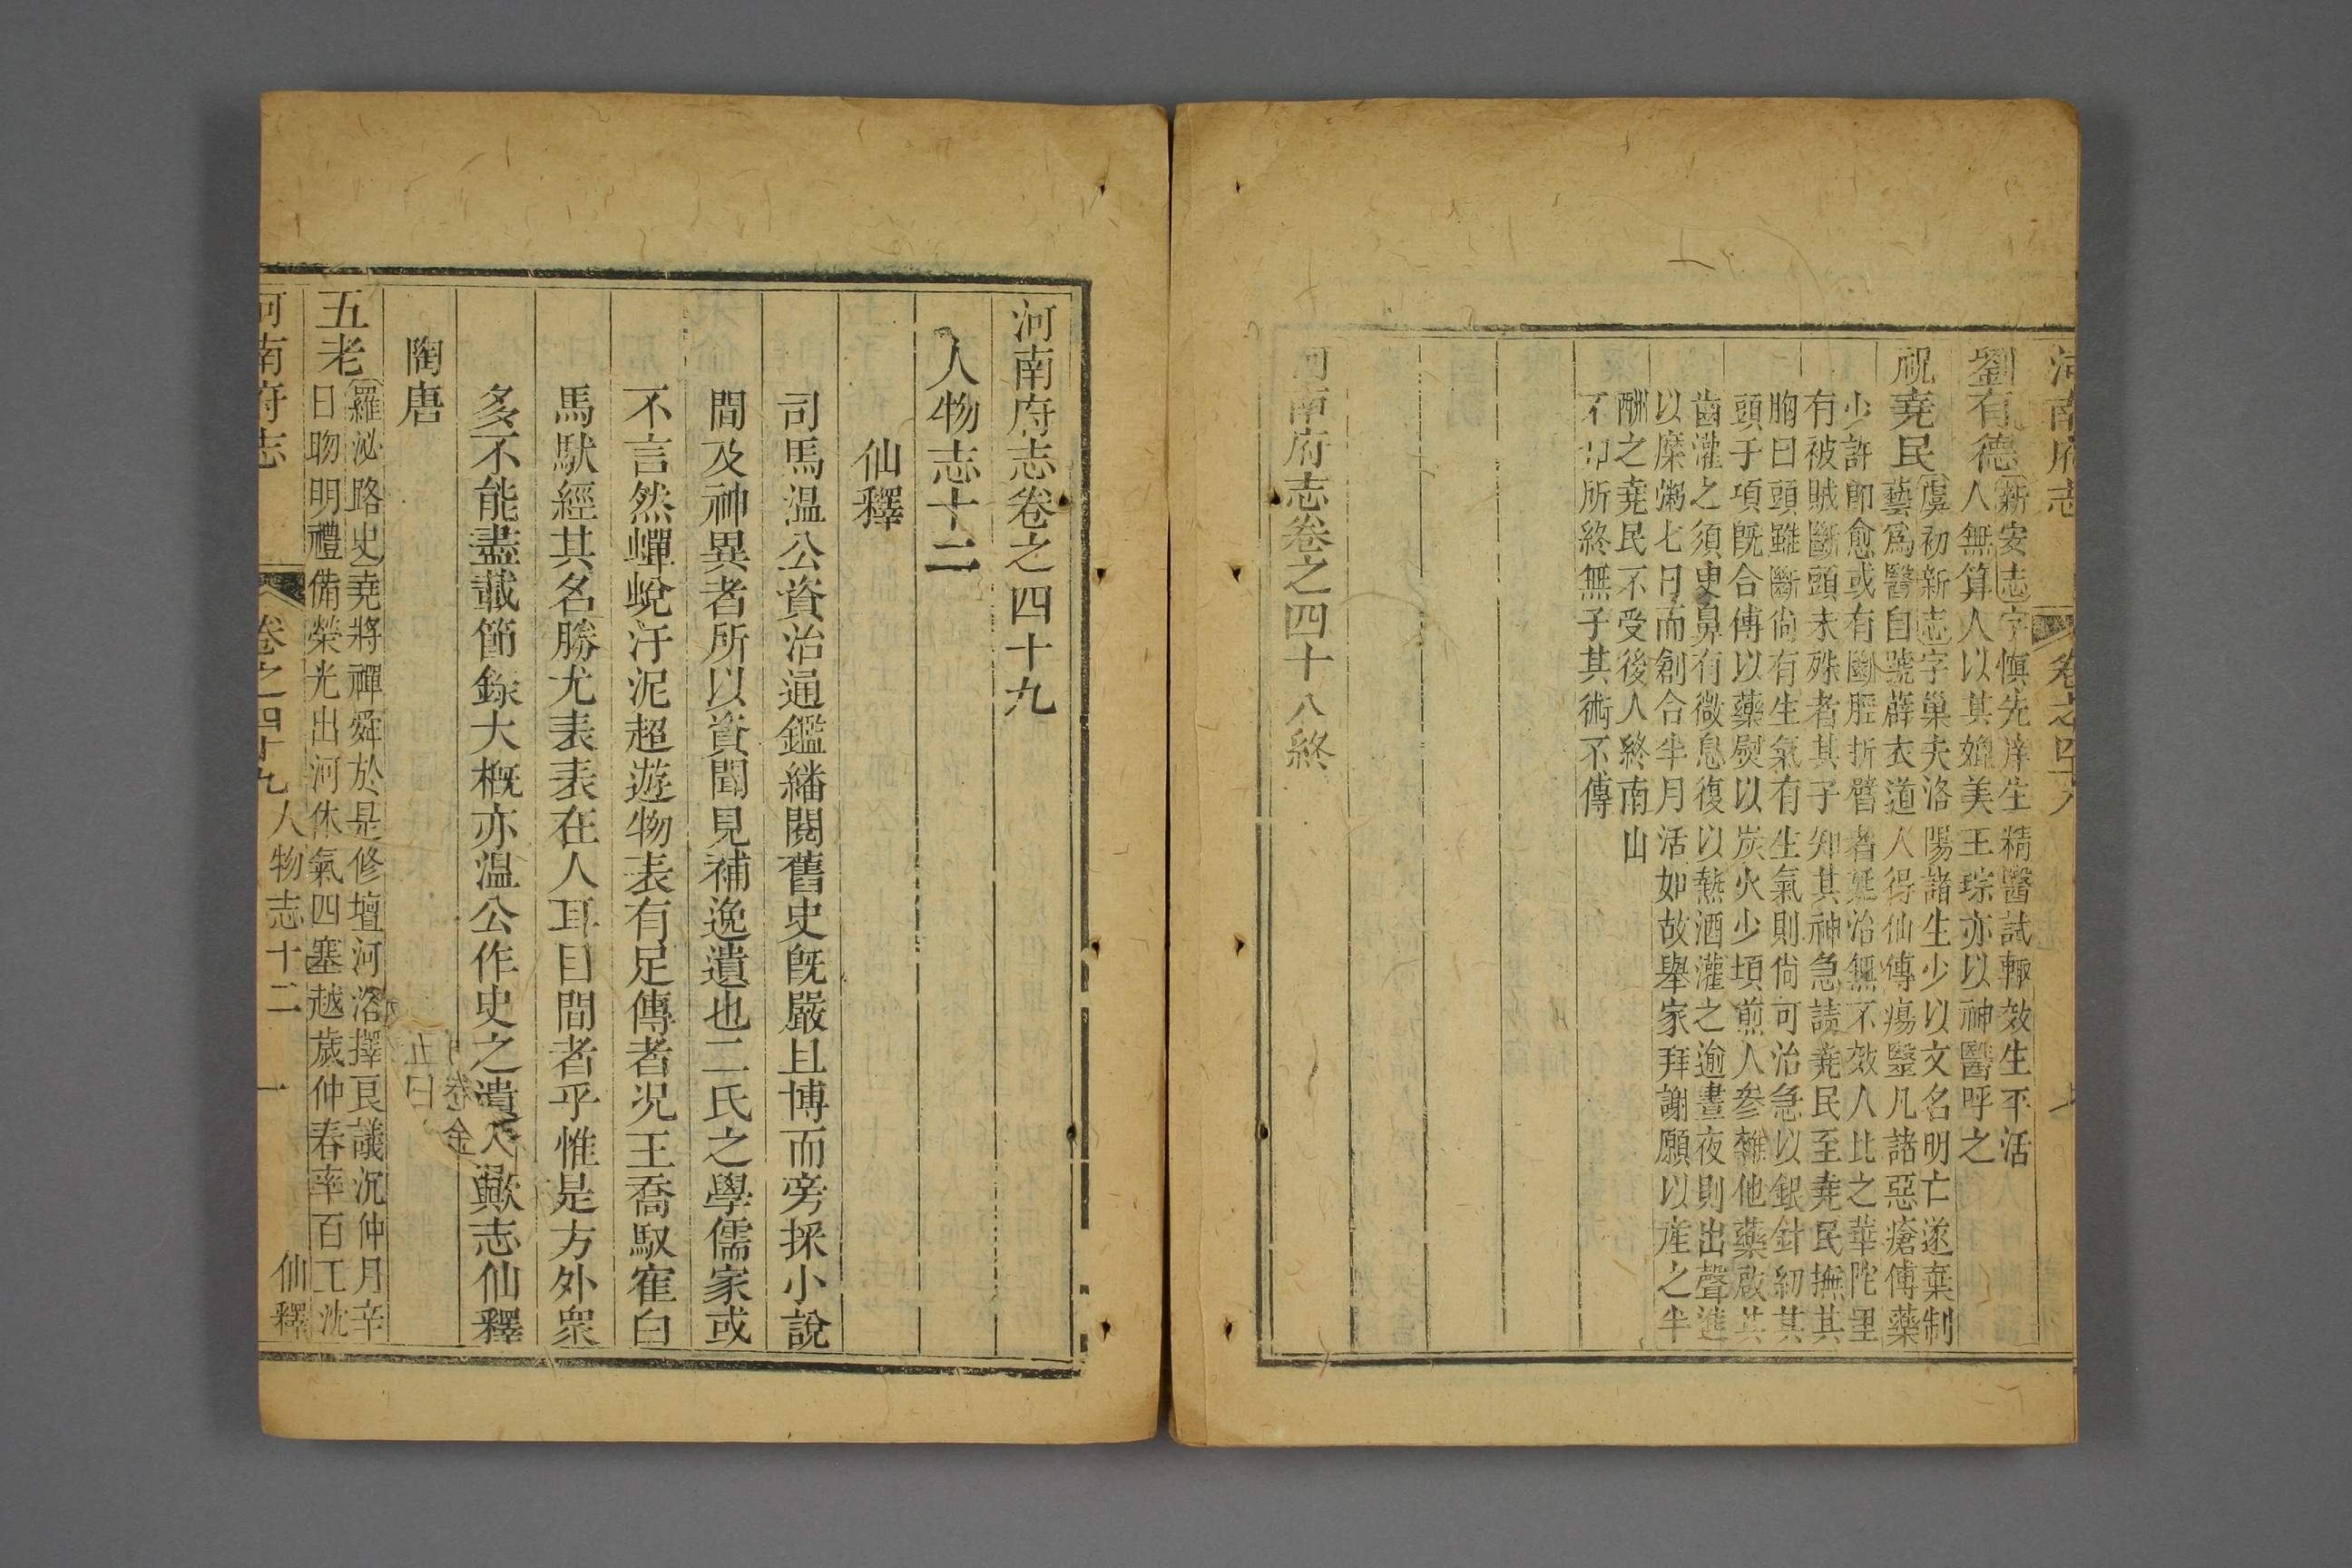 河南府志
卷之四十八
劉有德
新安志字愼先庠生精醫試輒效生平活
人無算人以其媲美王琮亦以神醫呼之
祝堯民
虞初新志字巢夫洛陽諸生少以文名明亡遂棄制
藝爲醫自號薜衣道人得仙傳瘍毉凡諸惡瘡傅藥
少許卽愈或有斷脛折臂者延治無不效人比之華陀里
有被賊斷頭未殊者其子知其神急請堯民至堯民撫其
胸曰頭雖斷尙有生氣有生氣則尙可治急以銀針紉其
頭于項旣合傅以藥熨以炭火少頃煎人參雜他藥啟其
齒灌之須臾鼻有微息復以熱酒灌之逾晝夜則出聲進
以糜粥七日而創合半月活如故舉家拜謝願以產之半
酬之堯民不受後入終南山
不知所終無子其術不傳
河南府志卷之四十八終
河南府志卷之四十九
人物志十二
仙釋
司馬溫公資治通鑑繙閱舊史旣嚴且博而旁採小說
間及神異者所以資聞見補逸遺也二氏之學儒家或
不言然蟬蛻汙泥超遊物表有足傳者況王喬馭寉白
馬馱經其名勝尤表表在人耳目間者乎惟是方外衆
多不能盡載節錄大概亦溫公作史之遺人歟志仙釋
陶唐
五老
羅泌路史堯將禪舜於是修壇河洛擇良議沉仲月辛
日昒明禮備榮光出河休氣四塞越歲仲春率百工沈
河南府志
卷之四十九
人物志十二
仙釋
一